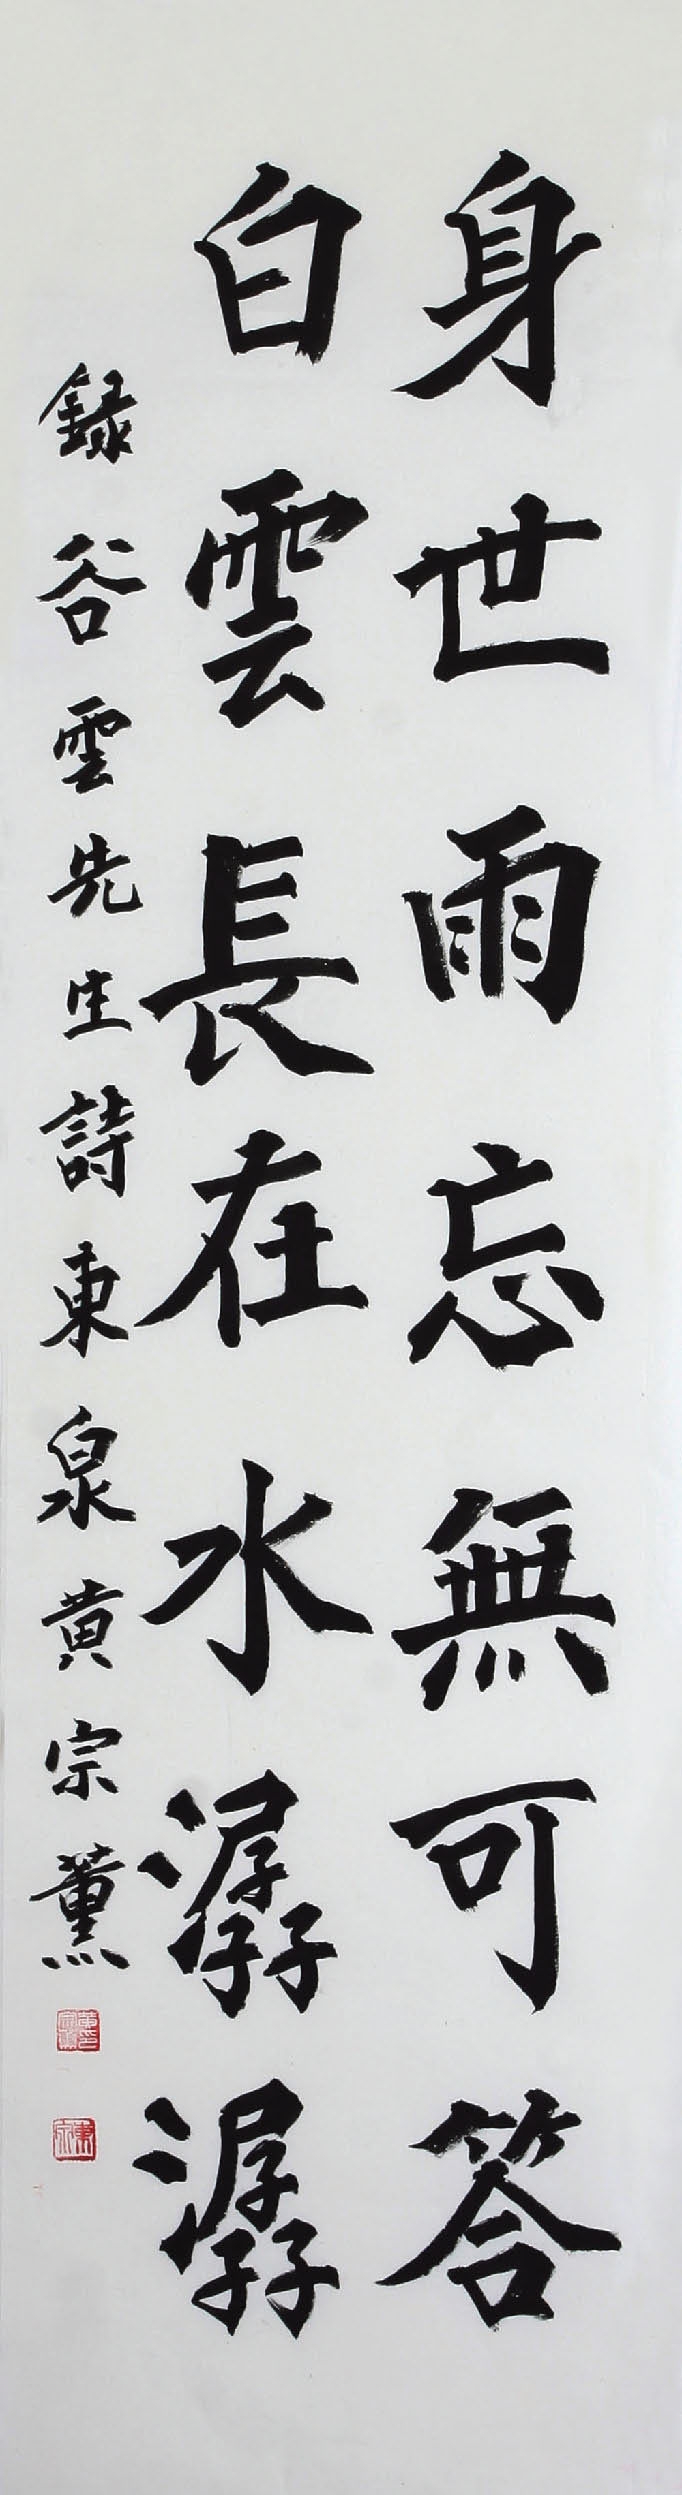 身世雨忘無可答
白雲長在水潺潺
録谷雲先生詩東泉黄宗薰